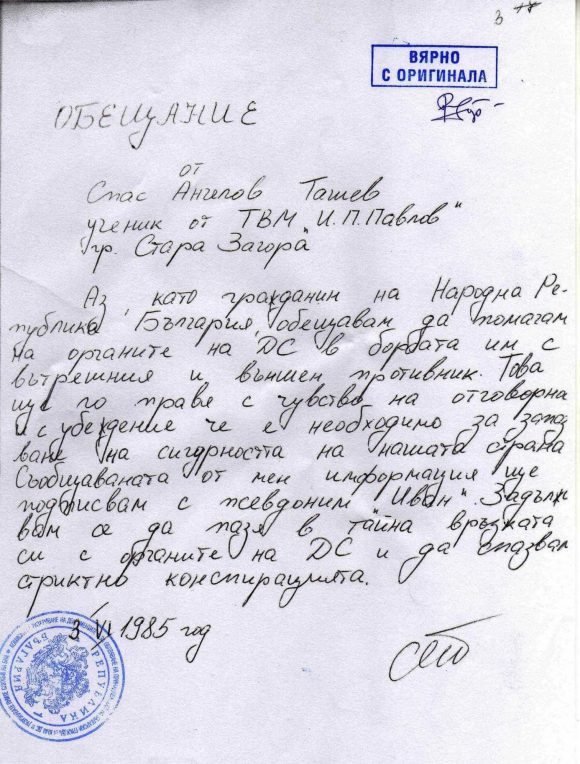 3
ВЯРНО
С ОРИГИНАЛА
ОБЕЩАНИЕ
от
Спас Ангелов Ташев
ученик от ТВМ "И.П.Павлов"
гр. Стара Загора
Аз, като гражданин на Народна Ре-
публика България, обещавам да помагам
на органите на ДС в борбата им с
вътрешния и външен противник. Това
ще го правя с чувство на отговорно
и с убеждение че е необходимо за запаз
ване на сигорността на нашата страна
Съобщаваната от мен информация ще
подписвам с псевдоним "Иван". Задълж
вам се да пазя в тайна връзката
си с органите на ДС и да спазвам
стриктно конспирацията.
3 VI 1985 год
РЕПУБЛИКА БЪЛГАРИЯ